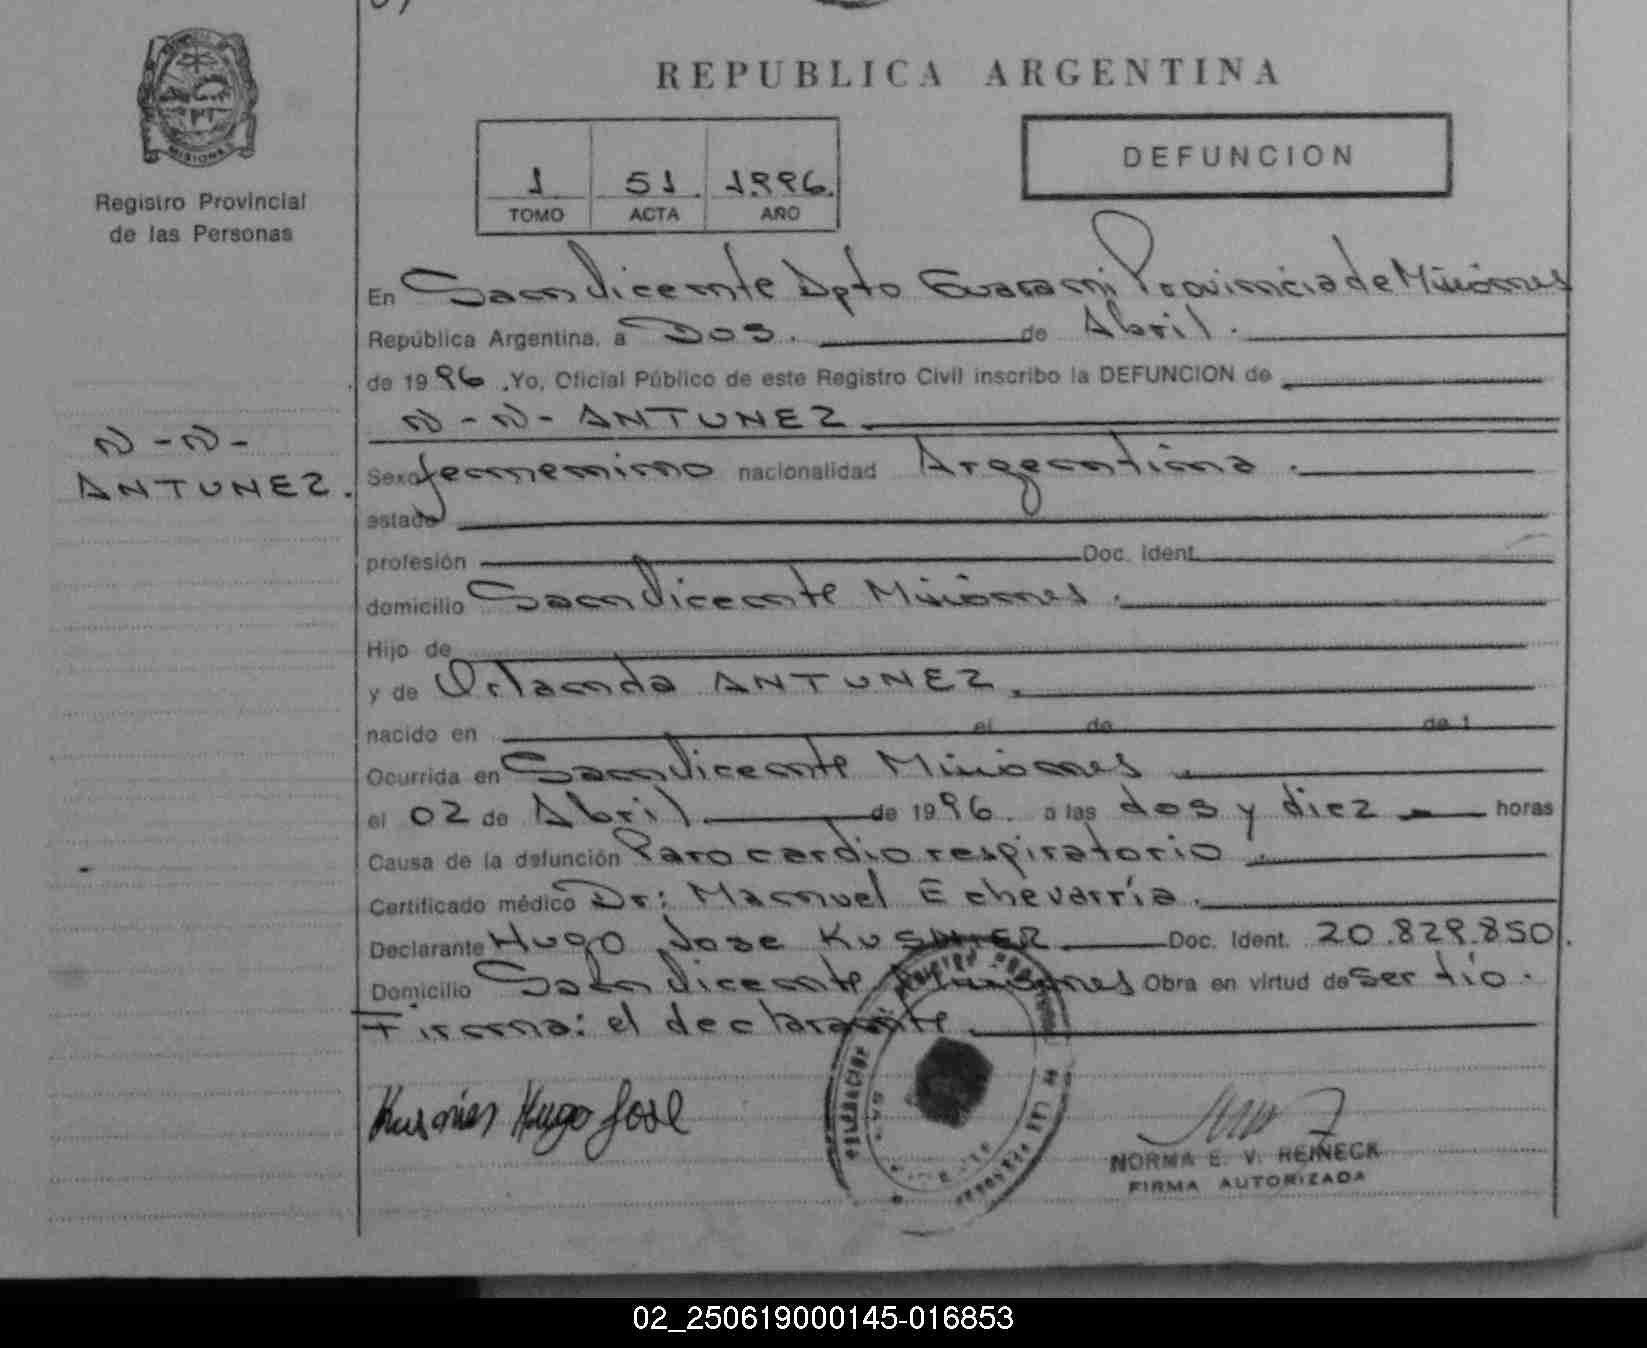 REPUBLICA ARGENTINA
MISIONES
Registro Provincial
de las Personas
1 51 1996
TOMO ACTA AÑO
DEFUNCION
En San Vicente Dpto Guarani Provincia de Misiones
República Argentina, a Dos. de Abril.
de 1996. Yo, Oficial Público de este Registro Civil inscribo la DEFUNCION de
N-N- ANTUNEZ
N-N-
ANTUNEZ.
Sexo femenino nacionalidad Argentina.
estado
profesión Doc. Ident.
domicilio San Vicente Misiones.
Hijo de
y de Orlanda ANTUNEZ.
nacido en el de de 1
Ocurrida en San Vicente Misiones
el 02 de Abril de 1996. a las dos y diez horas
Causa de la defunción Paro cardio respiratorio
Certificado médico Dr: Manuel Echevarría.
Declarante Hugo Jose KUSNIER Doc. Ident. 20.829.850.
Domicilio San Vicente Misiones Obra en virtud de ser tío.
Firma: el declarante
Kusnier Hugo Jose
NORMA E. V. REINECK
FIRMA AUTORIZADA
02_250619000145-016853